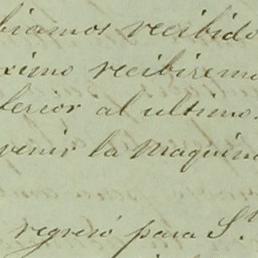 biamos recibido
ximo recibirem
ferior al ultimo.
venir la maquin
regresó para S.